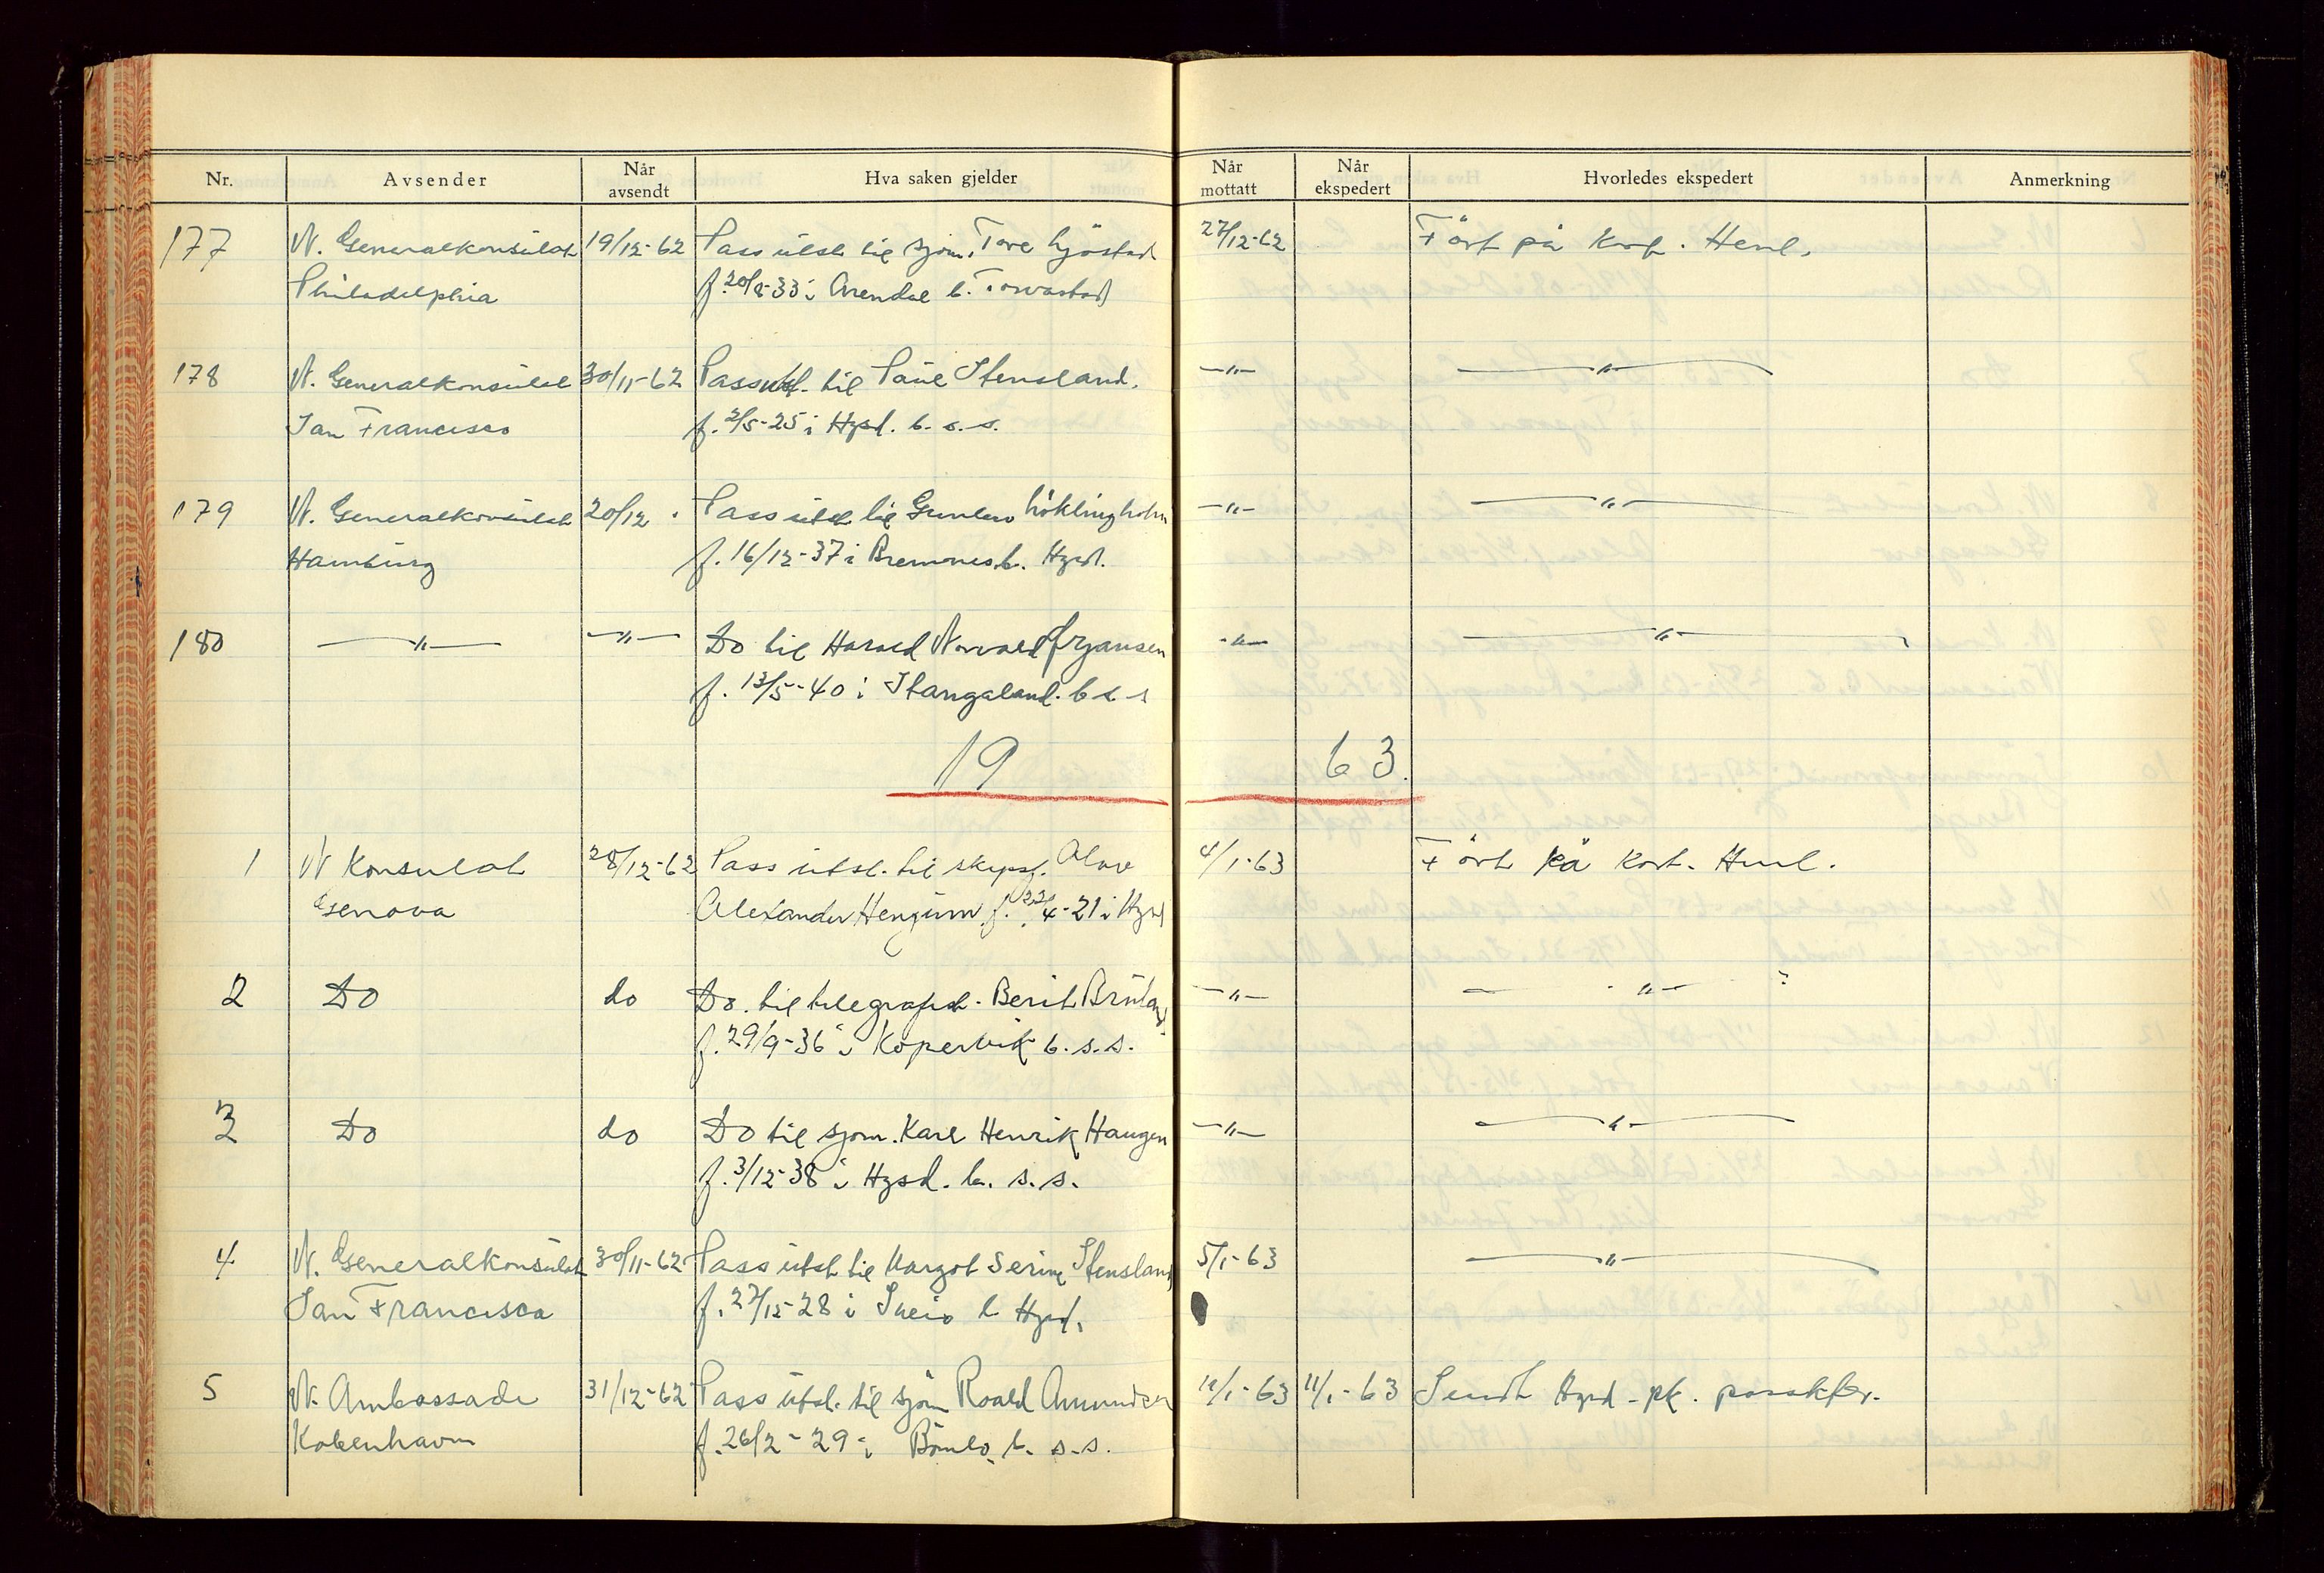 Nr. Avsender Når avsendt Hva saken gjelder Når mottatt Når ekspedert Hvorledes ekspedert Anmerkning
177 N. Generalkonsulat 19/12-62 Pass utst til sjøm. Tore 27/12-62 Ført på Kort. Henl.
Philadelphia f. 20/8-33 i Arendal b. Torvastad
178 N. Generalkonsulat 30/11-62 Pass utst. til Paul Stensland. —"— —"—
San Francisco f. 2/5-25 i Hgsd. b. s. s.
179 N. Generalkonsulat 20/12 Pass utst til Höklingholm —"— —"—
Hamburg f. 16/12-37 i Bremnes b. Hgsd.
180 —"— —"— Do til Harald Norvald Ørjansen —"— —"—
f. 13/5-40 i Stangaland. b s s
19 63.
1 N Konsulat 28/12-62 Pass utst. til skipsf. Alav 4/1-63 Ført på Kort. Henl.
Genova Alexander f. 22/4-21 i Hgsd
2 Do do Do. til telegrafist. Berit —"— —"—
f. 29/9-36 i Kopervik b. s. s.
3 Do do Do til sjøm. Karl Henrik Haugen —"— —"—
f. 3/12-38 i Hgsd. b. s. s.
4 N. Generalkonsulat 30/11-62 Pass utst til Margot Serine Stensland 5/1-63 —"—
San Francisco f. 27/12-28 i Sveio b Hgsd.
5 N. Ambassade 31/12-62 Pass utst. til sjøm Roald Amundsen 11/1-63 11/1-63 Sendt Hgsd - pk.
København f. 26/2-29 i Bömlo. b. s.s.